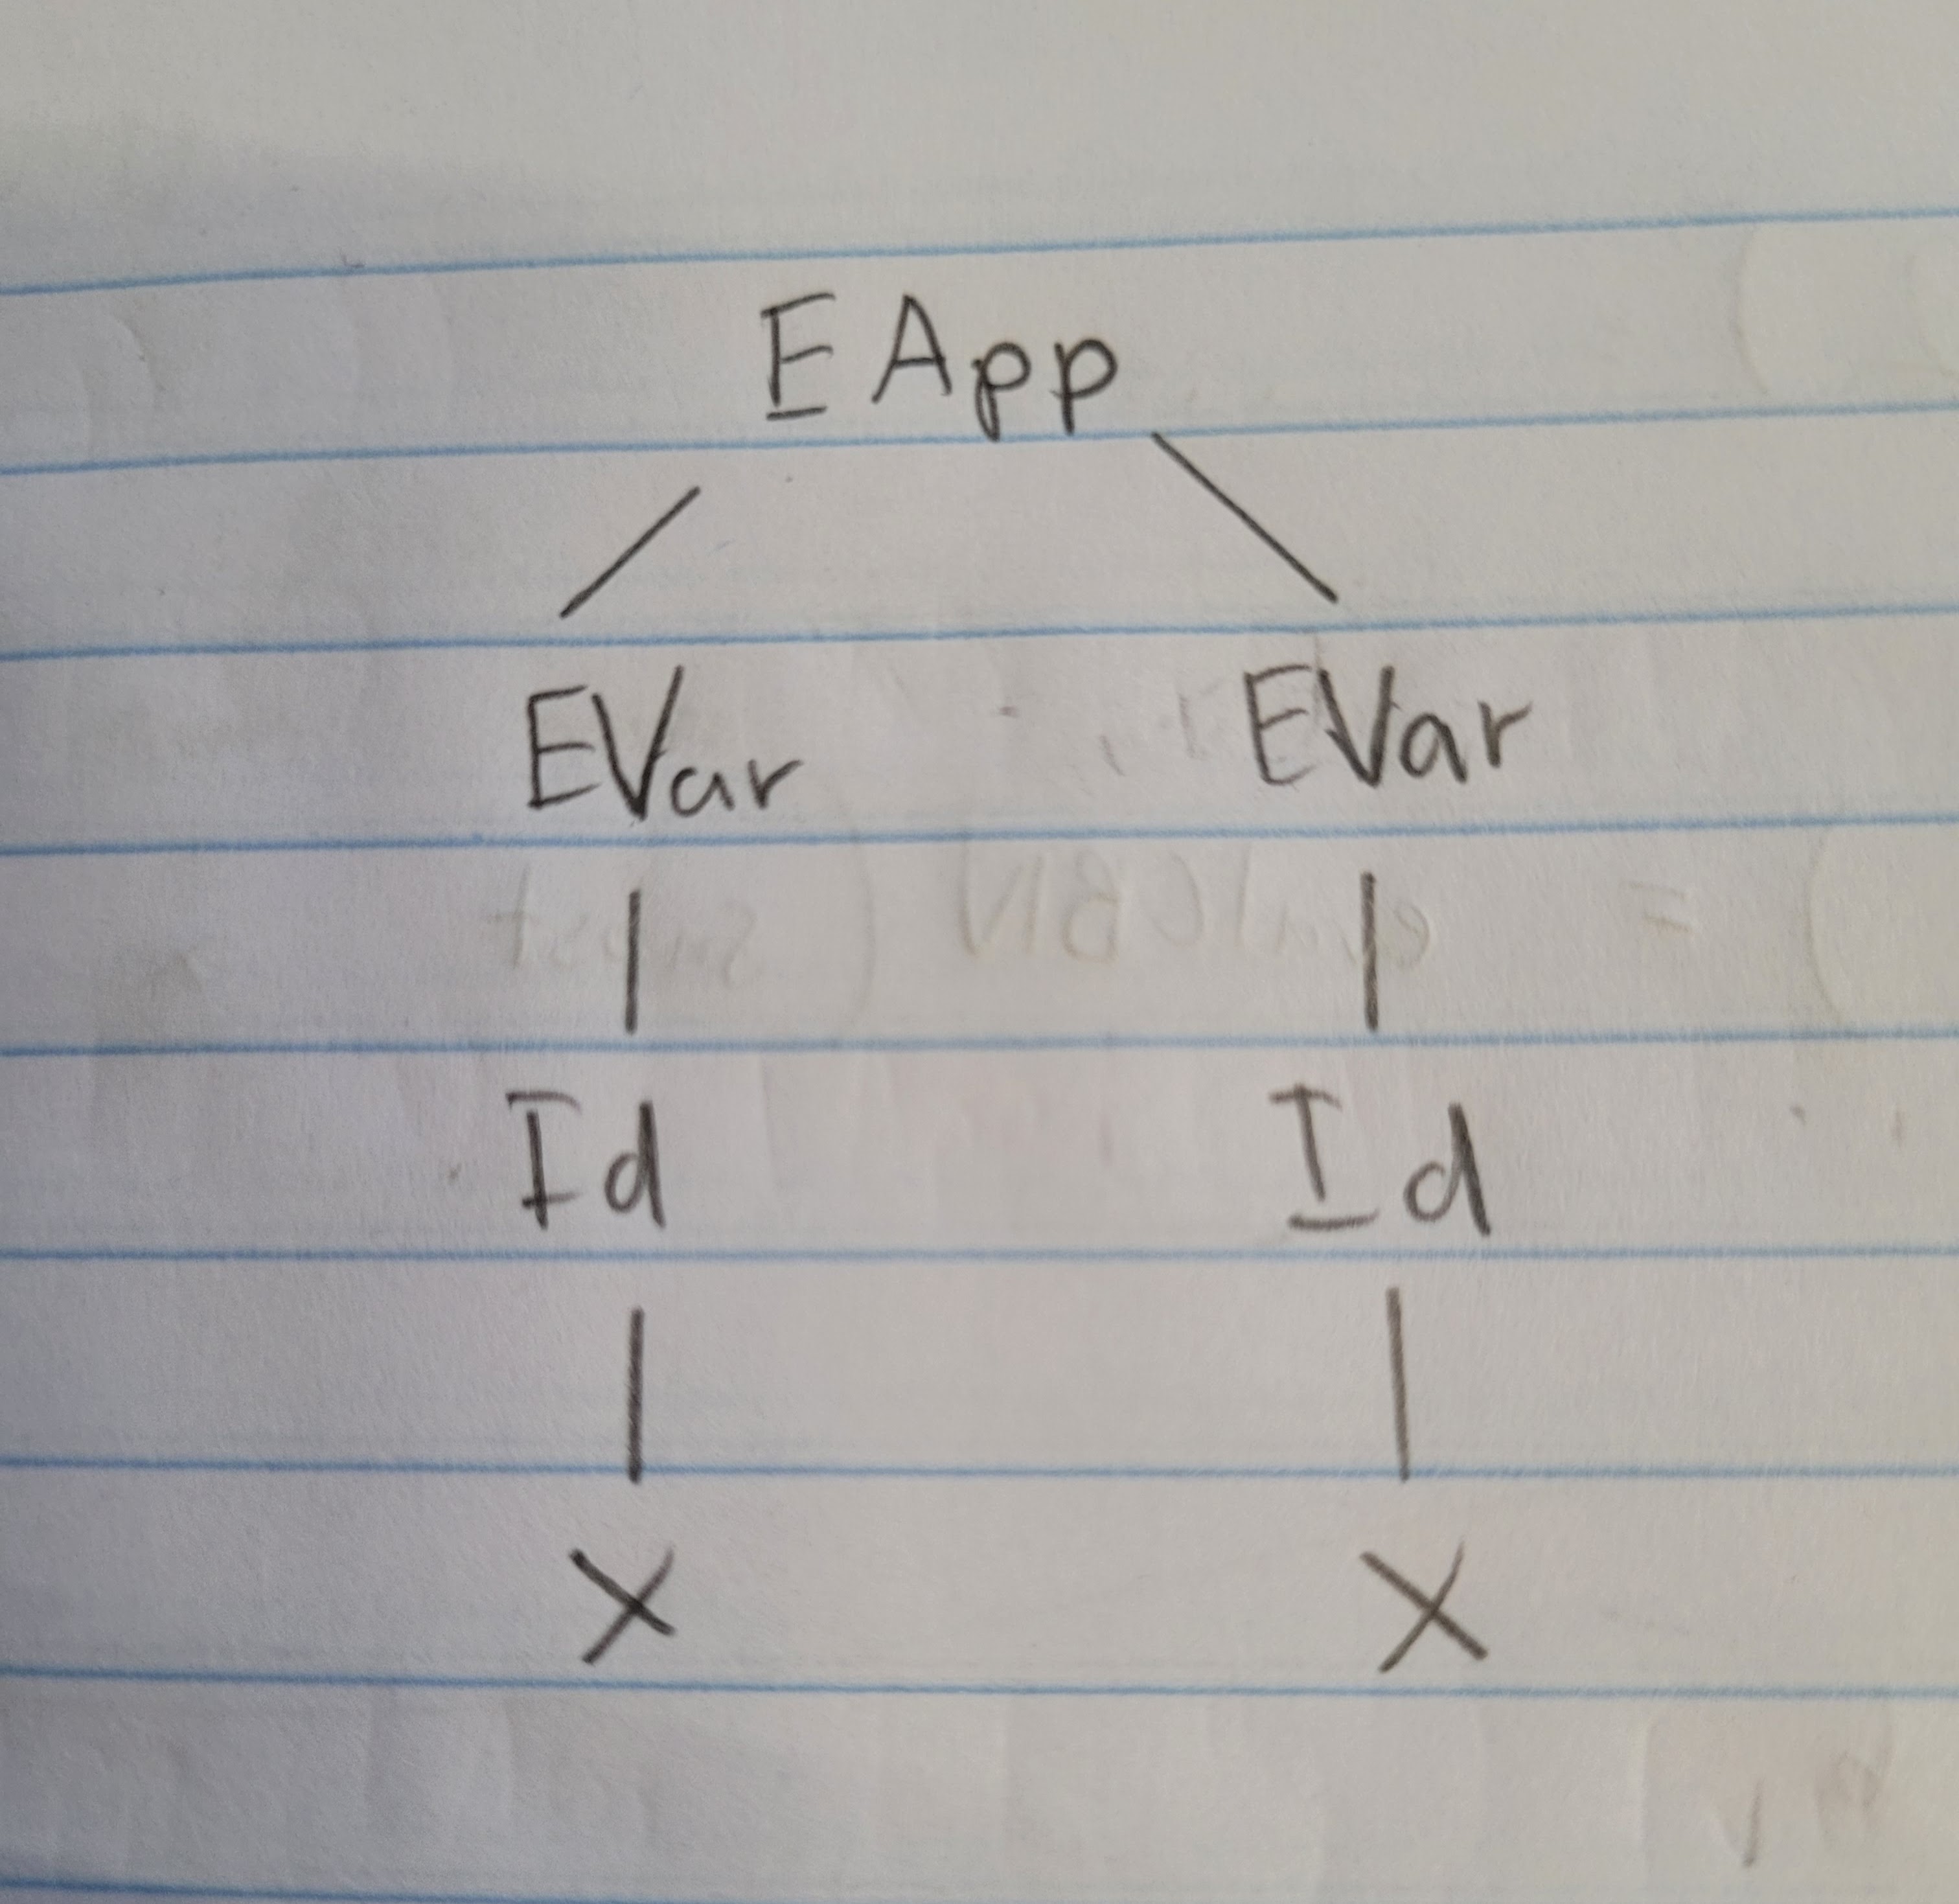 EApp
EVar EVar
Id Id
X X